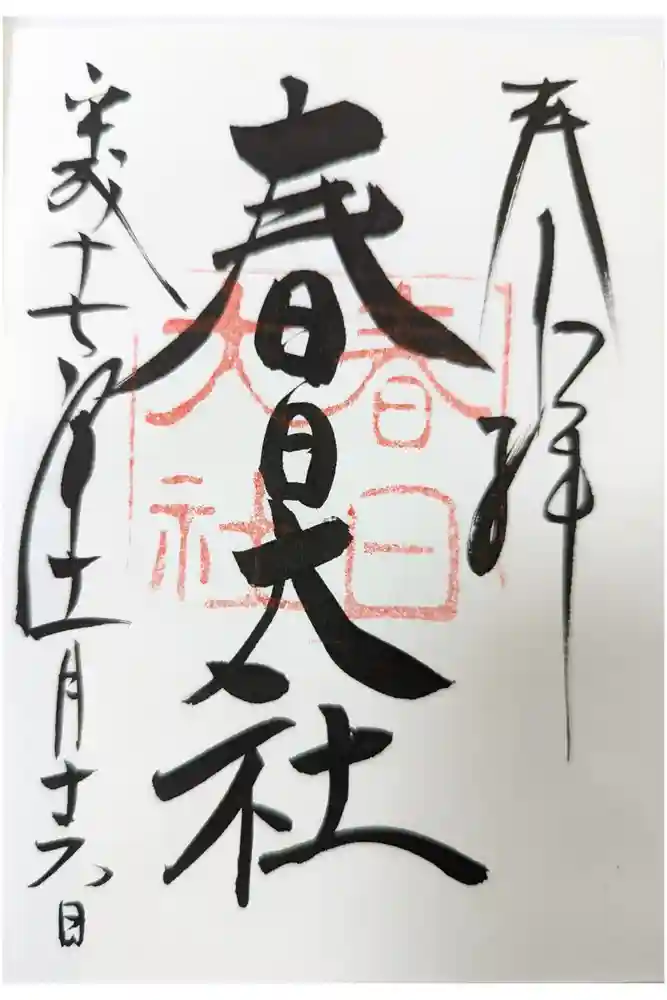 奉拝
春日大社
春日
大社
平成十七年十一月十六日